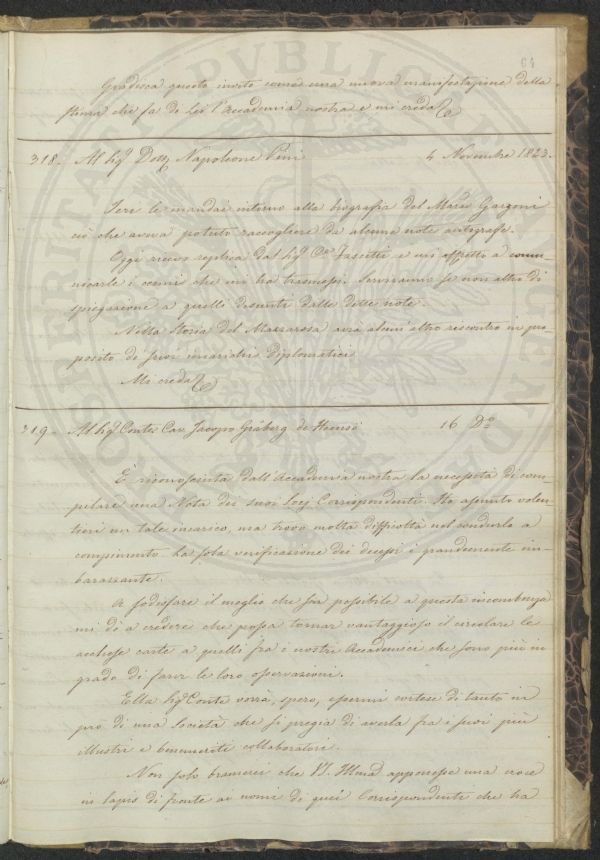 64
Gradisca questo invito come una nuova manifestazione della
stima che fa di Lei l'Accademia nostra e mi creda
318. Al Sigr Dottr Napoleone Pini 4 Novembre 1823.
Ieri le mandai intorno alla biografia del Marco Garzoni
ciò che aveva potuto raccogliere da alcune note autografe.
Oggi ricevo replica dal Sigr e mi affretto a comu-
nicarle i cenni che mi ha trasmessi. Serviranno se non altro di
spiegazione a quelli desunti dalle dette note.
Nella Storia del Mazzarosa avrà alcun' altro riscontro in pro-
posito di suoi incarichi diplomatici
Mi creda
319. Al Sigr Conte Cav Jacopo Gräberg de Hemsö 16 Do
È riconosciuta dall'Accademia nostra la necessità di com-
pilare una Nota dei suoi Socj Corrispondenti. Ho assunto volen-
tieri un tale incarico, ma trovo molta difficoltà nel condurlo a
compimento. La sola verificazione dei decessi è grandemente im-
barazzante.
A sodisfare il meglio che sia possibile a questa incombenza
mi do a credere che possa tornar vantaggioso il circolare le
acchose carte a quelli fra i nostri Accademici che sono più in
grado di farvi le loro osservazioni.
Ella Sigr Conte vorrà, spero, essermi cortese di tanto in
pro di una Società che si pregia di averla fra i suoi più
illustri e benemeriti collaboratori.
Non solo bramerei che V.S. Illma apponesse una croce
in lapis di fronte ai nomi di quei Corrispondenti che ha